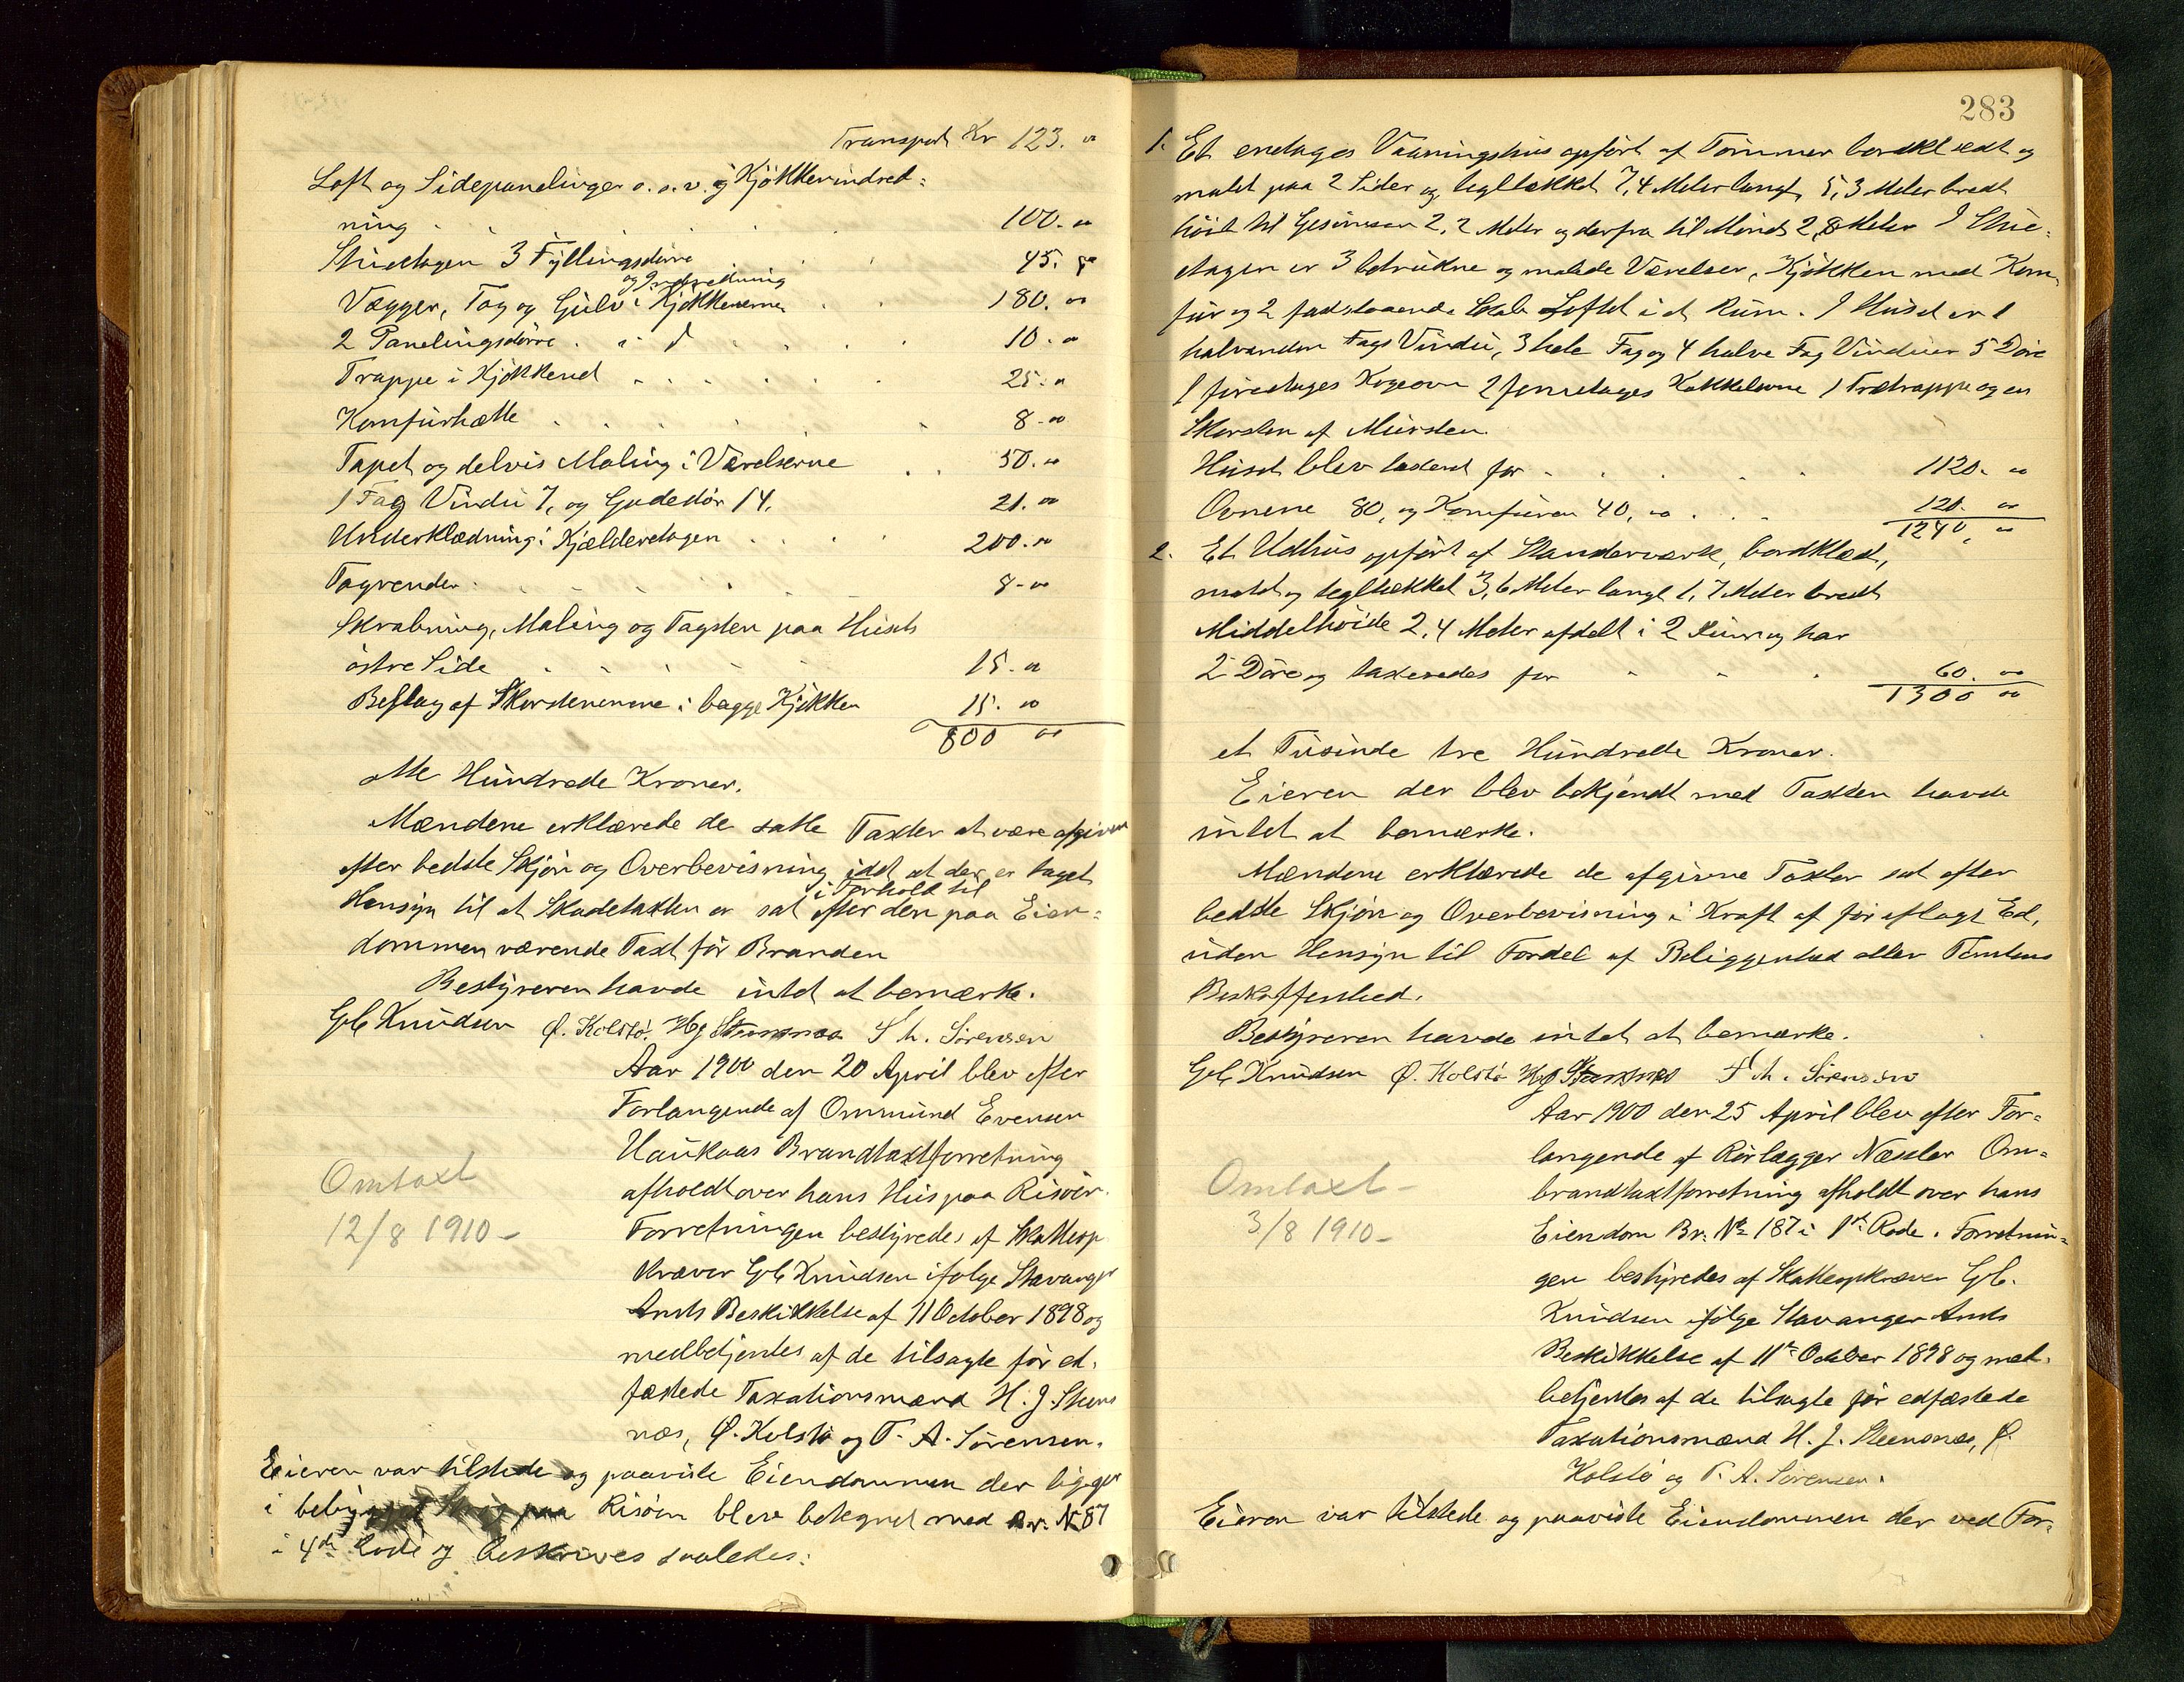 Transport Kr 123. 00
Loft og Sidepanelinger o. s. v. i Kjøkkenindred-
ning 100. 00
Stueetagen 3 Fyllingsdörre 45. 00
og Indredning
Vægger, Tag og Gulv i Kjøkkenerne 180. 00
2 Panelingsdörre 10. 00
Trappe i Kjøkkenet 25. 00
Komfürhætte 8. 00
Tapet og delvis Maling i Værelserne 50. 00
1 Fag Vindu 7, og Gadedör 14. 21. 00
Underklædning i Kjælderetagen 200. 00
Tagrender 8. 00
Skrabning, Maling og Tagsten paa Husets
östre Side 15. 00
Beslag af Skorstenene i begge Kjøkken 15. 00
800 00
otte Hundrede Kroner.
Mændene erklærede de satte Taxter at være afgivne
efter bedste Skjön og Overbevisning idet at der er taget
i Forhold til
Hensyn til at Skadetaxten er sat efter den paa Eien-
dommen værende Taxt för Branden
Bestyreren havde intet at bemærke.
Gb Knudsen Ø. Kolstö. HJ Steensnæs T A. Sörensen
Aar 1900 den 20 April blev efter
Forlangende af Ommund Evensen
Haukaas Brandtaxtforretning
afholdt over hans Hus paa Risöen.
Forretningen bestyredes af Skatteop
kræver Gb Knudsen ifølge Stavanger
Amts Beskikkelse af 11 October 1898 og
medbetjentes af de tilsagte för ed-
fæstede Taxationsmænd H. J. Steens
næs, Ø. Kolstö og T. A. Sörensen.
Omtaxt
12/8 1910 –
Eieren var tilstede og paaviste Eiendommen der ligger
i bebygget Strög paa Risöen blev betegnet med Br. № 87
i 4de Rode og beskrives saaledes:
283
1. Et enetages Vaaningshus opfört af Tömmer bordklædt og
malet paa 2 Sider og teglækket 7,4 Meter langt, 5,3 Meter bredt
höit til Gesimsen 2,2 Meter og derfra til Mönet 2,8 Meter I Stue-
etagen er 3 betrukne og malede Værelser, Kjøkken med Kom-
für og 2 faststaaende Skab Loftet i et Rum. I Huset er 1
halvanden Fags Vindu, 3 hele Fag og 4 halve Fag Vinduer 5 Döre
1 fireetages Kogeovn 2 femetages Kakkelovne 1 Trætrappe og en
Skorsten af Mursten.
Huset blev taxeret for 1120. 00
Ovnene 80, og Komfüren 40, 00 120. 00
1240, 00
2. Et Udhus opfört af Standerværk, bordklæd,
malet og teglækket 3,6 Meter langt 1,7 Meter bredt
Middelhöide 2,4 Meter afdelt i 2 Rum og har
2 Döre og taxeredes for 60. 00
1300 00
et Tusinde tre Hundrede Kroner.
Eieren der blev bekjendt med Taxten havde
intet at bemærke.
Mændene erklærede de afgivne Taxter sat efter
bedste Skjön og Overbevisning i Kraft af för aflagt Ed,
uden Hensyn til Fordel af Beliggenhed eller Tomtens
Beskaffenhed.
Bestyreren havde intet at bemærke.
Gb Knudsen Ø. Kolstö HJ Steensnæs T A. Sörensen
Aar 1900 den 25 April blev efter For-
langende af Rörlægger Næsler Om-
brandtaxtforretning afholdt over hans
Eiendom Br. № 187 i 1ste Rode. Forretnin-
gen bestyredes af Skatteopkræver Gb.
Knudsen ifølge Stavanger Amts
Beskikkelse af 11te October 1898 og med-
betjentes af de tilsagte för edfæstede
Taxationsmænd H. J. Steensnæs, Ø.
Kolstö og T. A. Sörensen.
Omtaxt –
3/8 1910 –
Eieren var tilstede og paaviste Eiendommen der ved For-